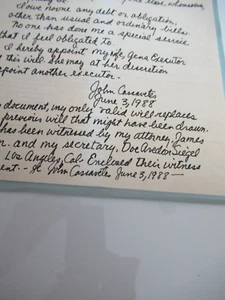 I owe no one any debt or obligation,
other than usual and ordinary bills.
No one has done me a special service
that I feel obligated to
I hereby appoint my wife, Gena Executor
of this will. She may at her discretion
appoint another executor.
John Cassavetes
June 3, 1988
document, my only valid will replaces
previous will that might have been drawn.
has been witnessed by my attorney, James
and my secretary, Doe Avedon Siegel
Los Angeles, Cal. Enclosed their witness
John Cassavetes June 3, 1988 —